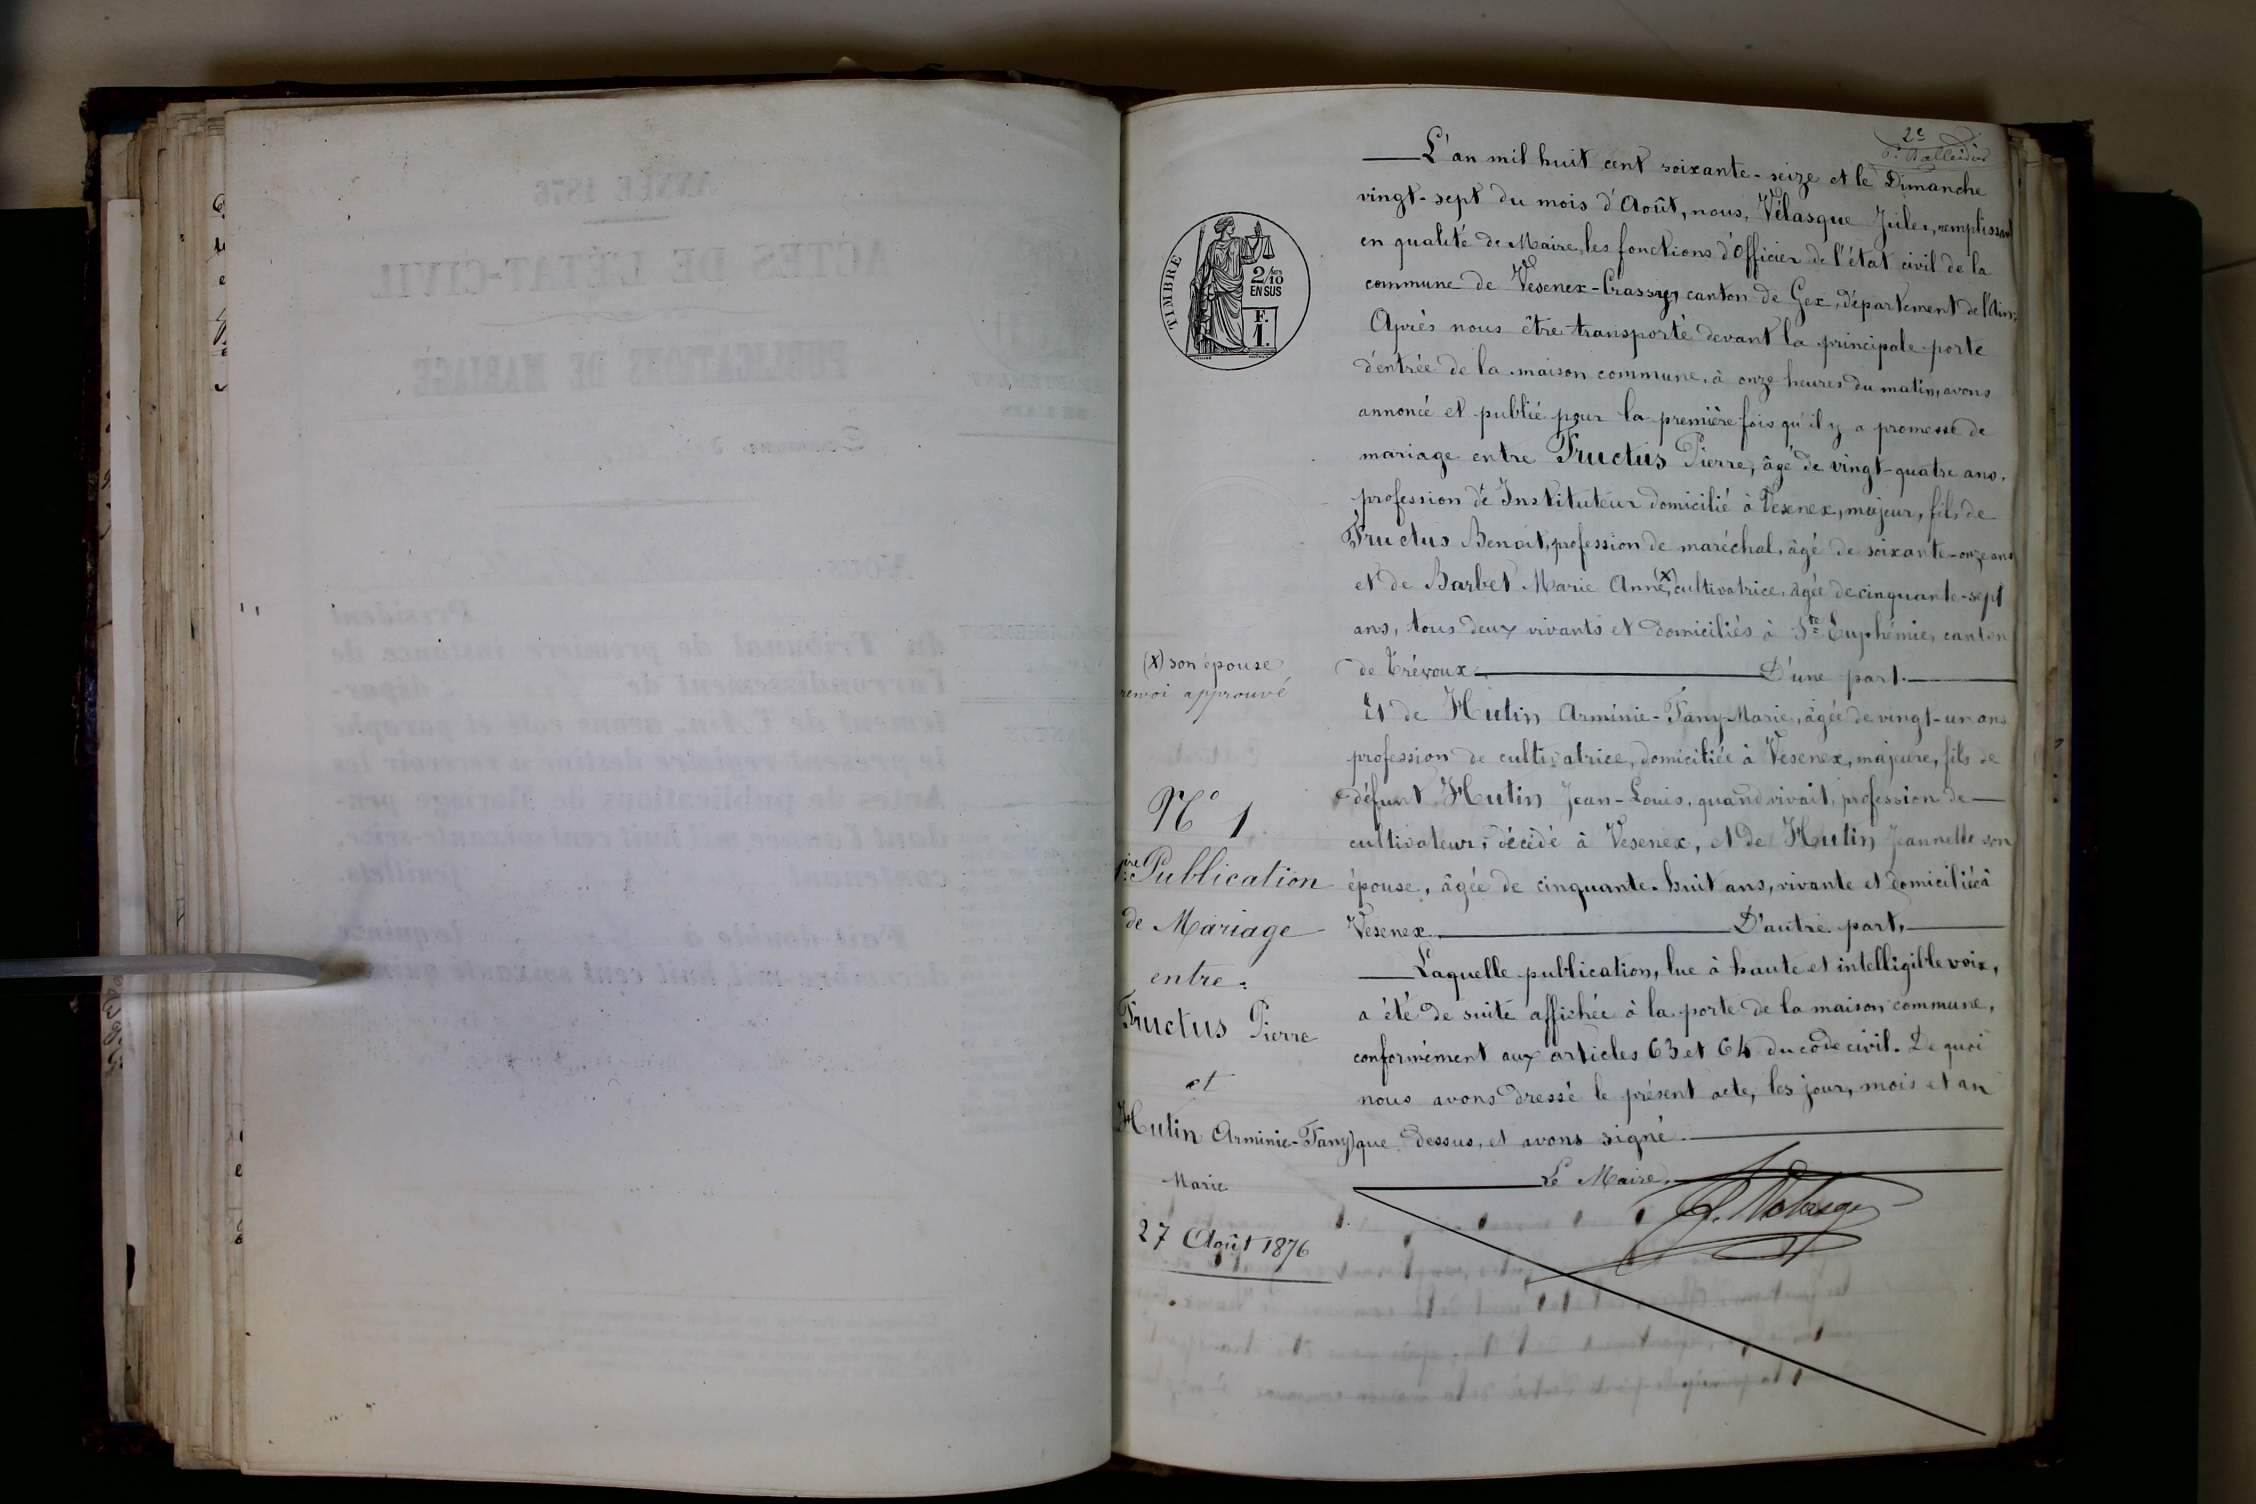 2e
L'an mil huit cent soixante-seize et le Dimanche
vingt-sept du mois d'Août, nous, Vélasque Jules, remplissant
en qualité de Maire, les fonctions d'Officier de l'état civil de la
commune de Vesenex-Crassy, canton de Gex, département de l'Ain;
Après nous être transporté devant la principale porte
d'entrée de la maison commune, à onze heures du matin, avons
annoncé et publié pour la première fois qu'il y a promesse de
mariage entre Fructus Pierre, âgé de vingt-quatre ans,
profession de Instituteur domicilié à Vesenex, majeur, fils de
Fructus Benoit, profession de maréchal, âgé de soixante-onze ans
et de Barbet Marie Anne (x), cultivatrice, âgée de cinquante-sept
ans, tous deux vivants et domiciliés à Ste Euphémie, canton
de Trévoux. D'une part.
Et de Hutin Arminie-Fany-Marie, âgée de vingt-un ans
profession de cultivatrice, domiciliée à Vesenex, majeure, fils de
défunt Hutin Jean-Louis, quand vivait, profession de
cultivateur, décédé à Vesenex, et de Hutin Jeannette son
épouse, âgée de cinquante-huit ans, vivante et domiciliée à
Vesenex. D'autre part,
Laquelle publication, lue à haute et intelligible voix,
a été de suite affichée à la porte de la maison commune,
conformément aux articles 63 et 64 du code civil. De quoi
nous avons dressé le présent acte, les jour, mois et an
que dessus, et avons signé
Le Maire,
TIMBRE
2/10
EN SUS
F.
1.
(x) son épouse
renvoi approuvé
No 1
1ère Publication
de Mariage
entre:
Fructus Pierre
et
Hutin Arminie-Fany
Marie
27 Août 1876
ANNÉE 1876
ACTES DE L'ÉTAT-CIVIL
PUBLICATIONS DE MARIAGE